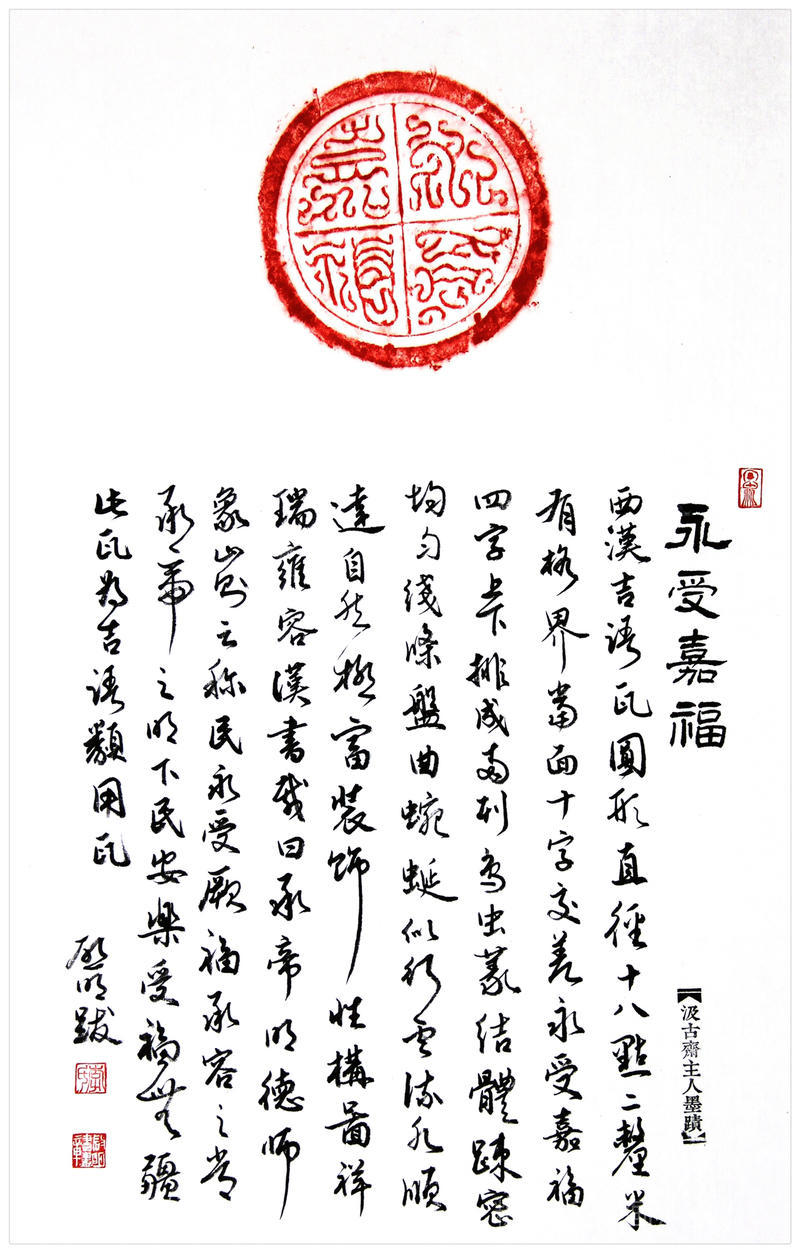 永受嘉福
永受嘉福
西漢吉語瓦圓形直徑十八點二釐米
有格界當面十字交差永受嘉福
四字上下排成兩列鳥蟲篆結體疎密
均勻綫條盤曲蜿蜒似行雲流水順
達自然極富裝飾性構圖祥
瑞雍容漢書載曰承帝明德師
象山則云稱民永受厥福承容之常
承帝之明下民安樂受福無疆
此瓦為吉語類用瓦
啟明跋
汲古齋主人墨蹟